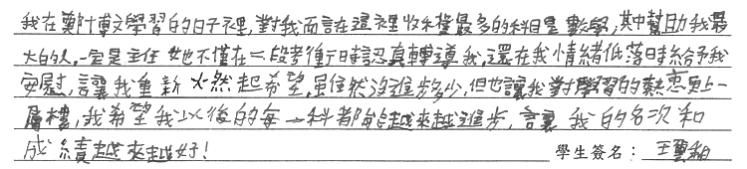 我在鄭博文學習的日子裡,對我而言在這裡收穫最多的科目是數學,其中幫助我最
大的人,一定是主任 她不僅在一段考衝日時認真輔導我,還在我情緒低落時給予我
安慰,讓我重新燃起希望,雖然沒進步多少,但也讓我對學習的熱忱更上一
層樓,我希望我以後的每一科都能越來越進步,讓我的名次和
成績越來越好!
學生簽名:王